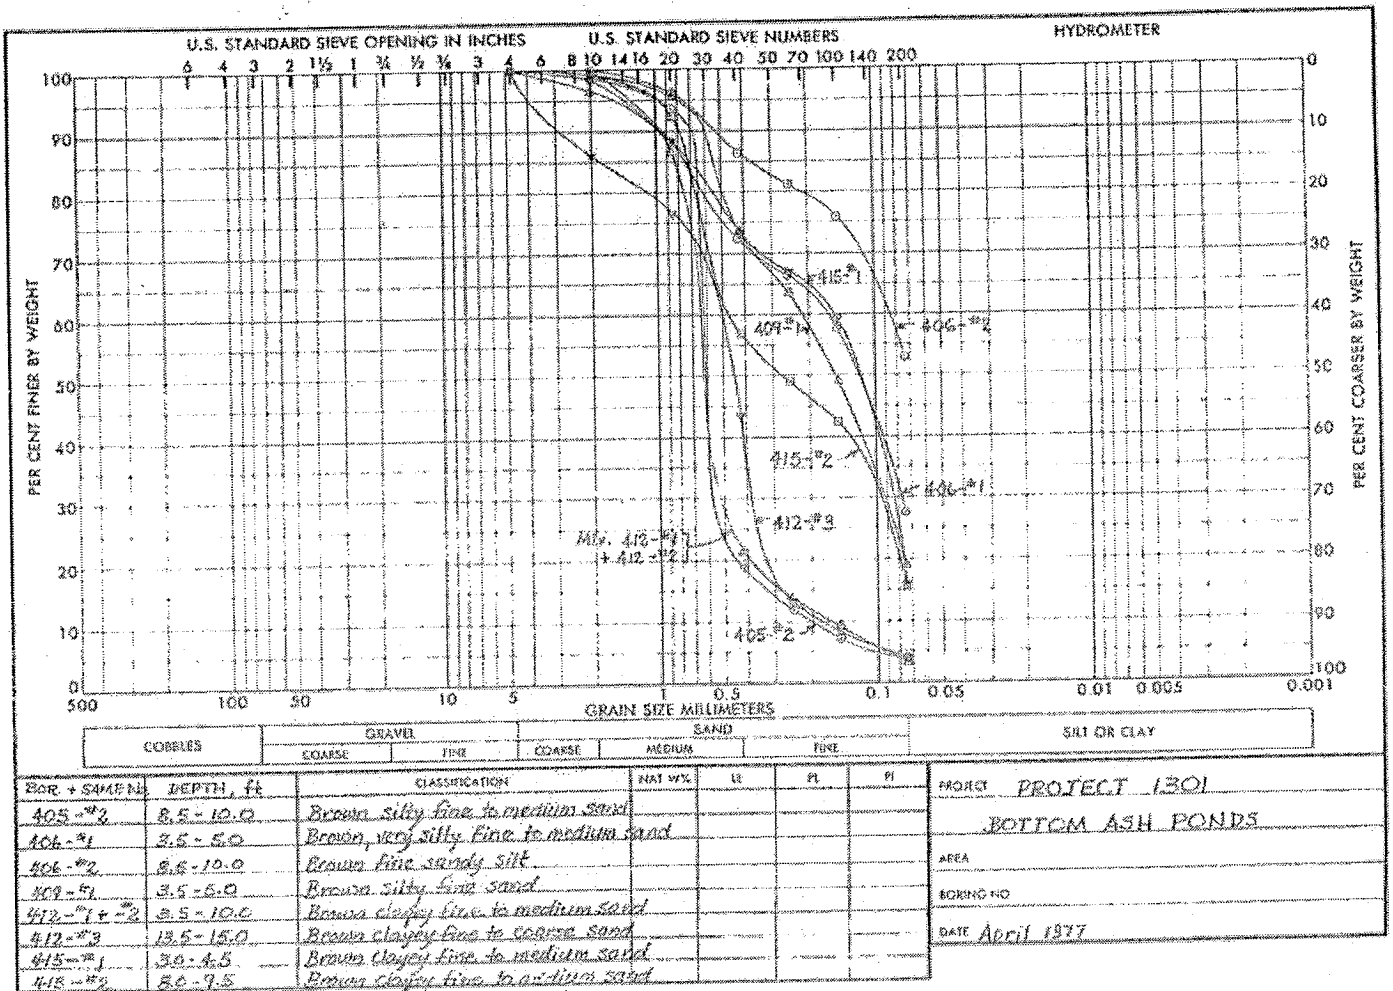 U.S. STANDARD SIEVE OPENING IN INCHES U.S. STANDARD SIEVE NUMBERS HYDROMETER
6 4 3 2 1½ 1 ¾ ½ ⅜ 3 4 6 8 10 14 16 20 30 40 50 70 100 140 200
100 90 80 70 60 50 40 30 20 10 0
PER CENT FINER BY WEIGHT
0 10 20 30 40 50 60 70 80 90 100
PER CENT COARSER BY WEIGHT
415-#1
409-#1
406-#2
415-#2
406-#1
412-#3
412-#1
+ 412-#2
405-#2
500 100 50 10 5 1 0.5 0.1 0.05 0.01 0.005 0.001
GRAIN SIZE MILLIMETERS
COBBLES GRAVEL SAND SILT OR CLAY
COARSE FINE COARSE MEDIUM FINE
DEPTH, ft CLASSIFICATION NAT W% LL PL PI
405-#2 8.5-10.0 Brown silty fine to medium sand
406-#1 3.5-5.0 Brown, very silty fine to medium sand
406-#2 8.5-10.0 Brown fine sandy silt
409-#1 3.5-5.0 Brown silty fine sand
412-#1 + -#2 8.5-10.0 Brown clayey fine to medium sand
412-#3 13.5-15.0 Brown clayey fine to coarse sand
415-#1 3.0-4.5 Brown clayey fine to medium sand
415-#2 8.0-9.5 Brown clayey fine to medium sand
PROJECT PROJECT 1301
BOTTOM ASH PONDS
AREA
BORING NO
DATE April 1977